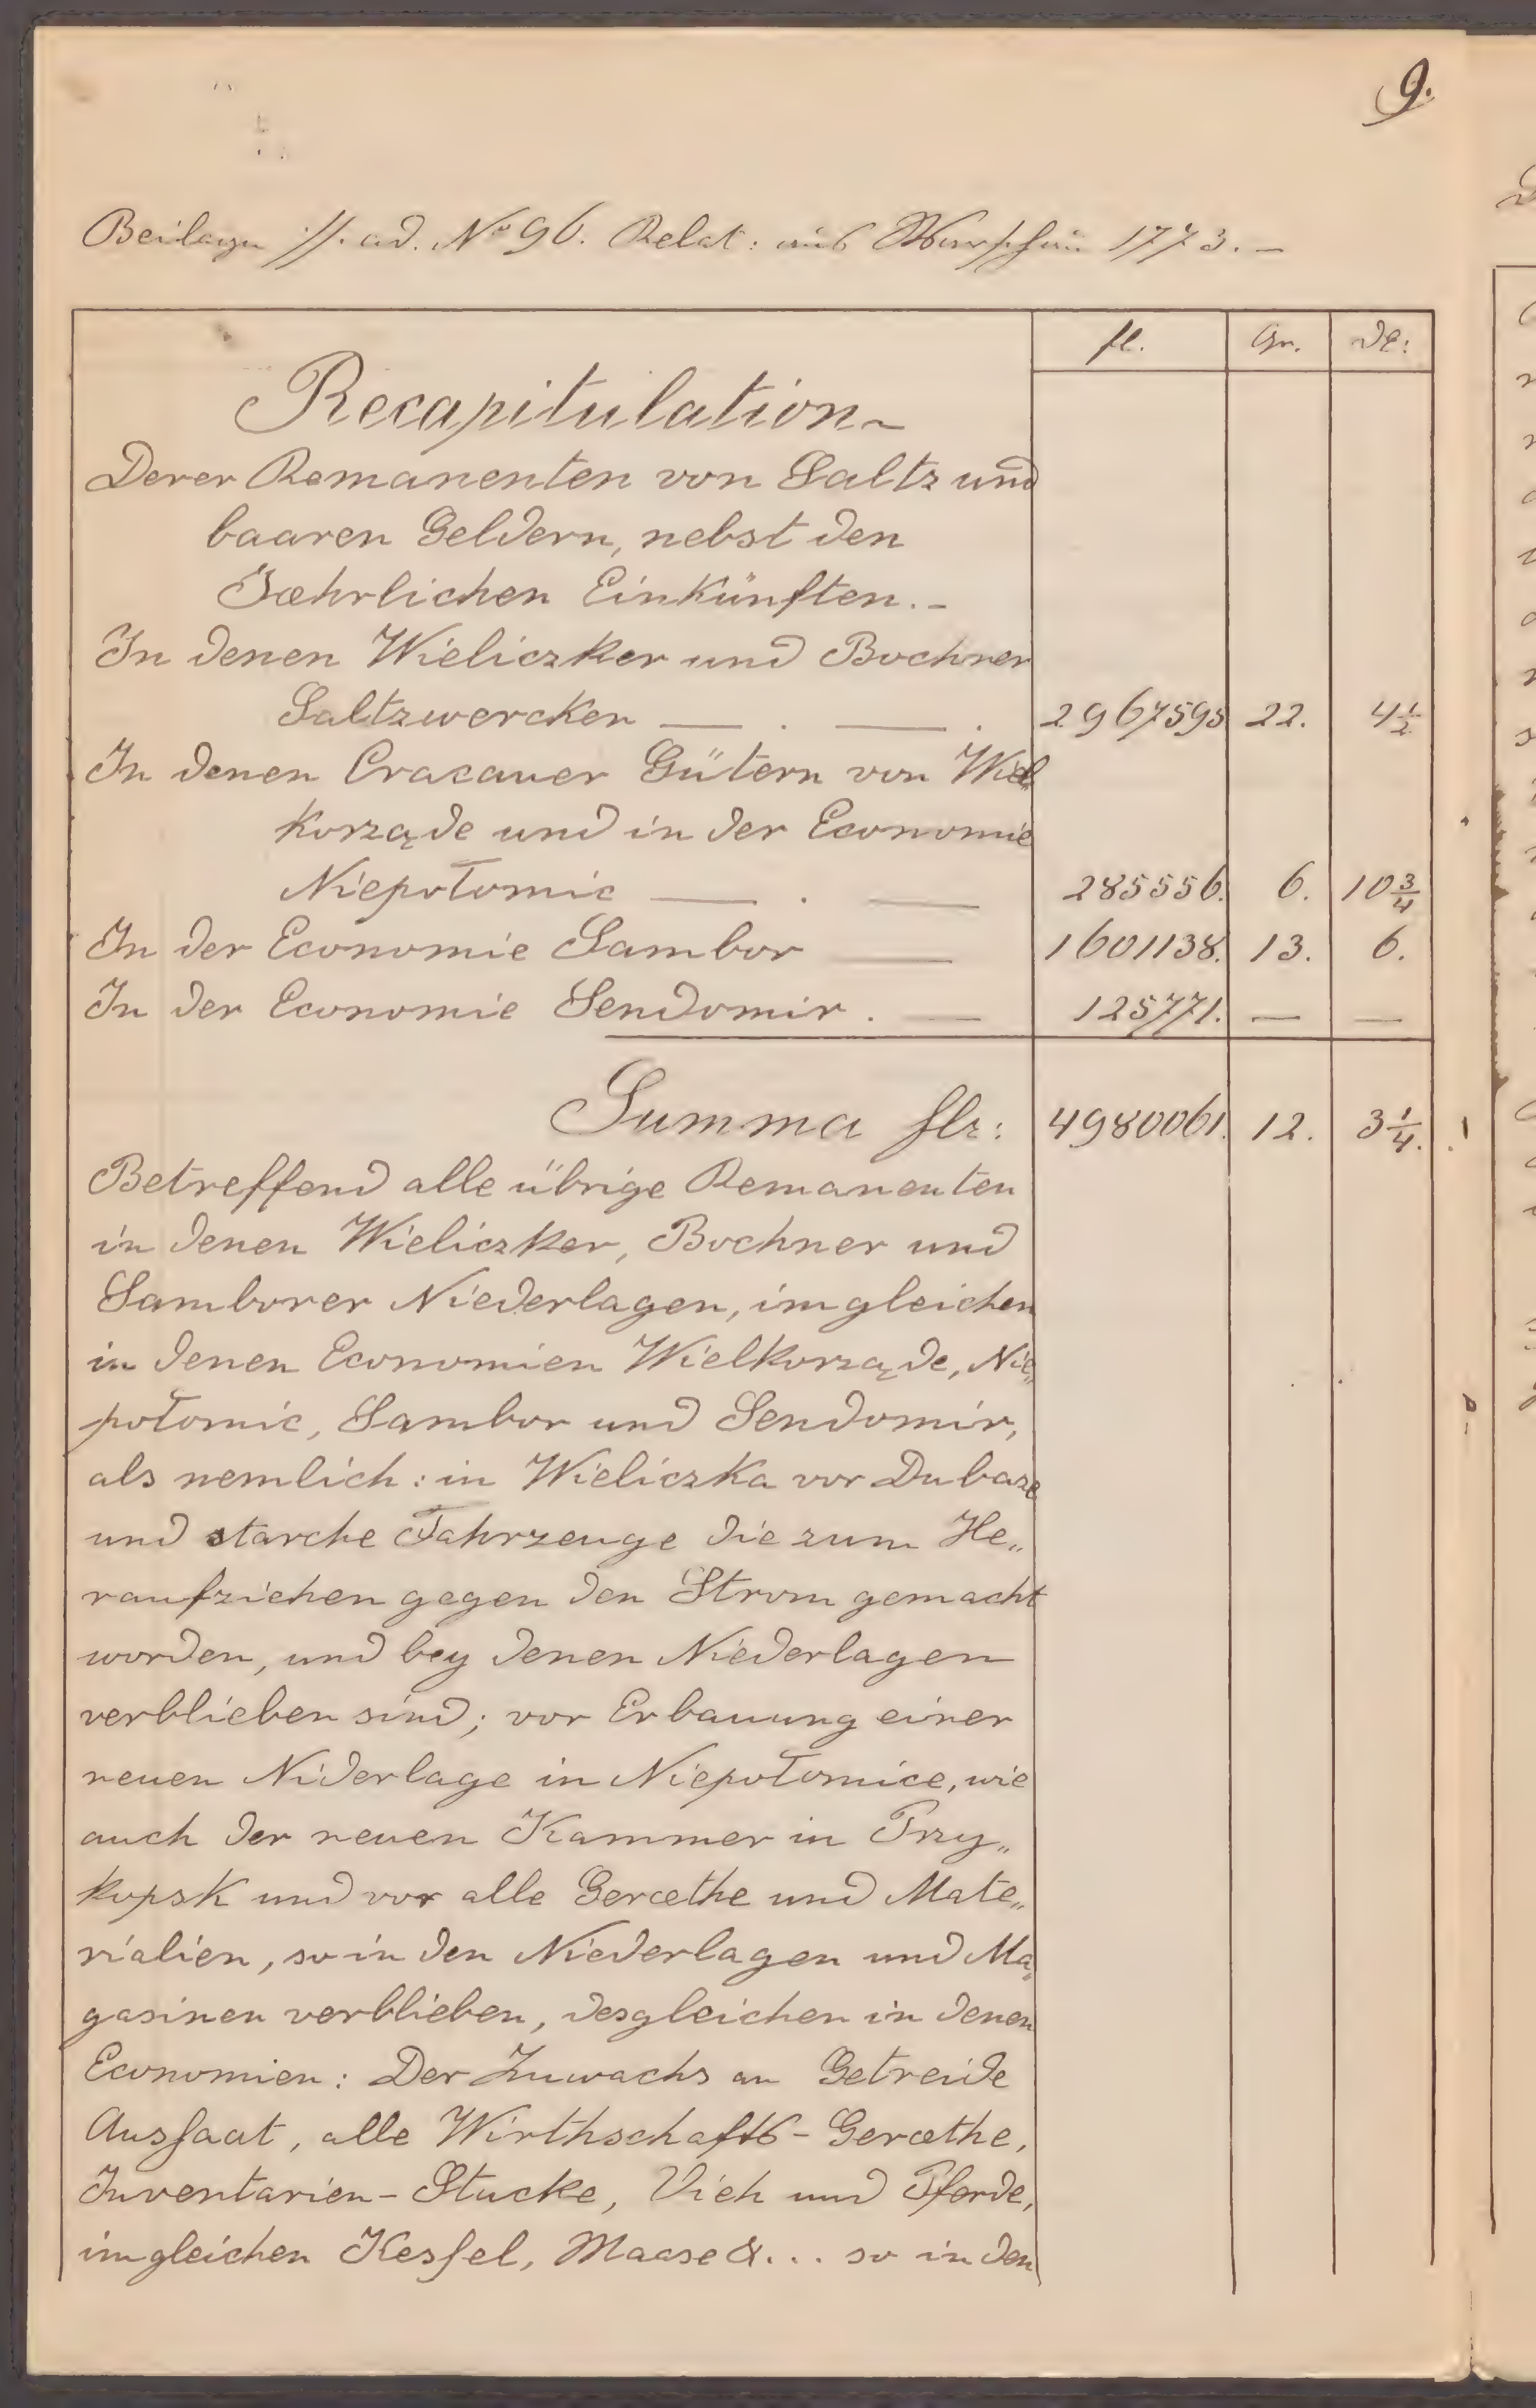 9.
Beilage //. ad. No 96. Relat: aus Warschau 1773. –
fl. Gr. d.:
Recapitulation
Derer Remanenten von Saltz und
baaren Geldern, nebst den
Jæhrlichen Einkünften. –
In denen Wieliczker und Bochner
Saltzwercken — . — . 2967595 22. 4½
In denen Cracauer Gütern von Wiel„
korząde und in der Economie
Niepołomic — . — 285556. 6. 10¾
In der Economie Sambor — 1601138. 13. 6.
In der Economie Sendomir . — 125771. — —
Summa flr: 4980061. 12. 3¼.
Betreffend alle übrige Remanenten
in denen Wieliczker, Bochner und
Samborer Niederlagen, imgleichen
in denen Economien Wielkorząde, Nie„
połomic, Sambor und Sendomir,
als nemlich: in Wieliczka vor Dubase
und starche Fahrzeuge die zum He„
raufziehen gegen den Strom gemacht
worden, und bey denen Niederlagen
verblieben sind; vor Erbauung einer
neuen Niderlage in Niepołomice, wie
auch der neuen Kammer in Przy„
kopsk und vor alle Geræthe und Mate„
rialien, so in den Niederlagen und Ma„
gasinen verblieben, desgleichen in denen
Economien: Der Zuwachs an Getreide
Aussaat, alle Wirthschafts-Geræthe,
Inventarien-Stucke, Vieh und Pferde,
imgleichen Kessel, Maase &... so in den